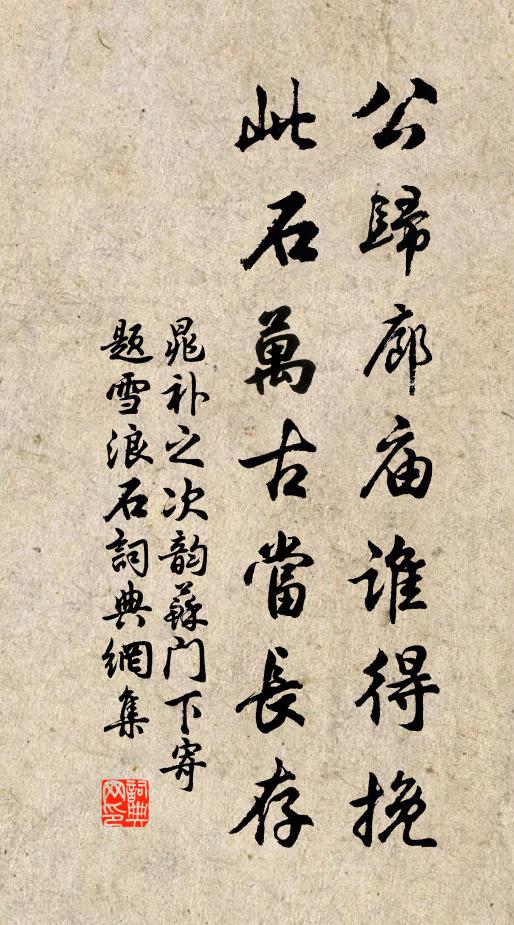 公歸廊庙誰得挽
此石萬古當長存
晁补之次韵蘇门下寄
题雪浪石詞典網集
詞典
网印